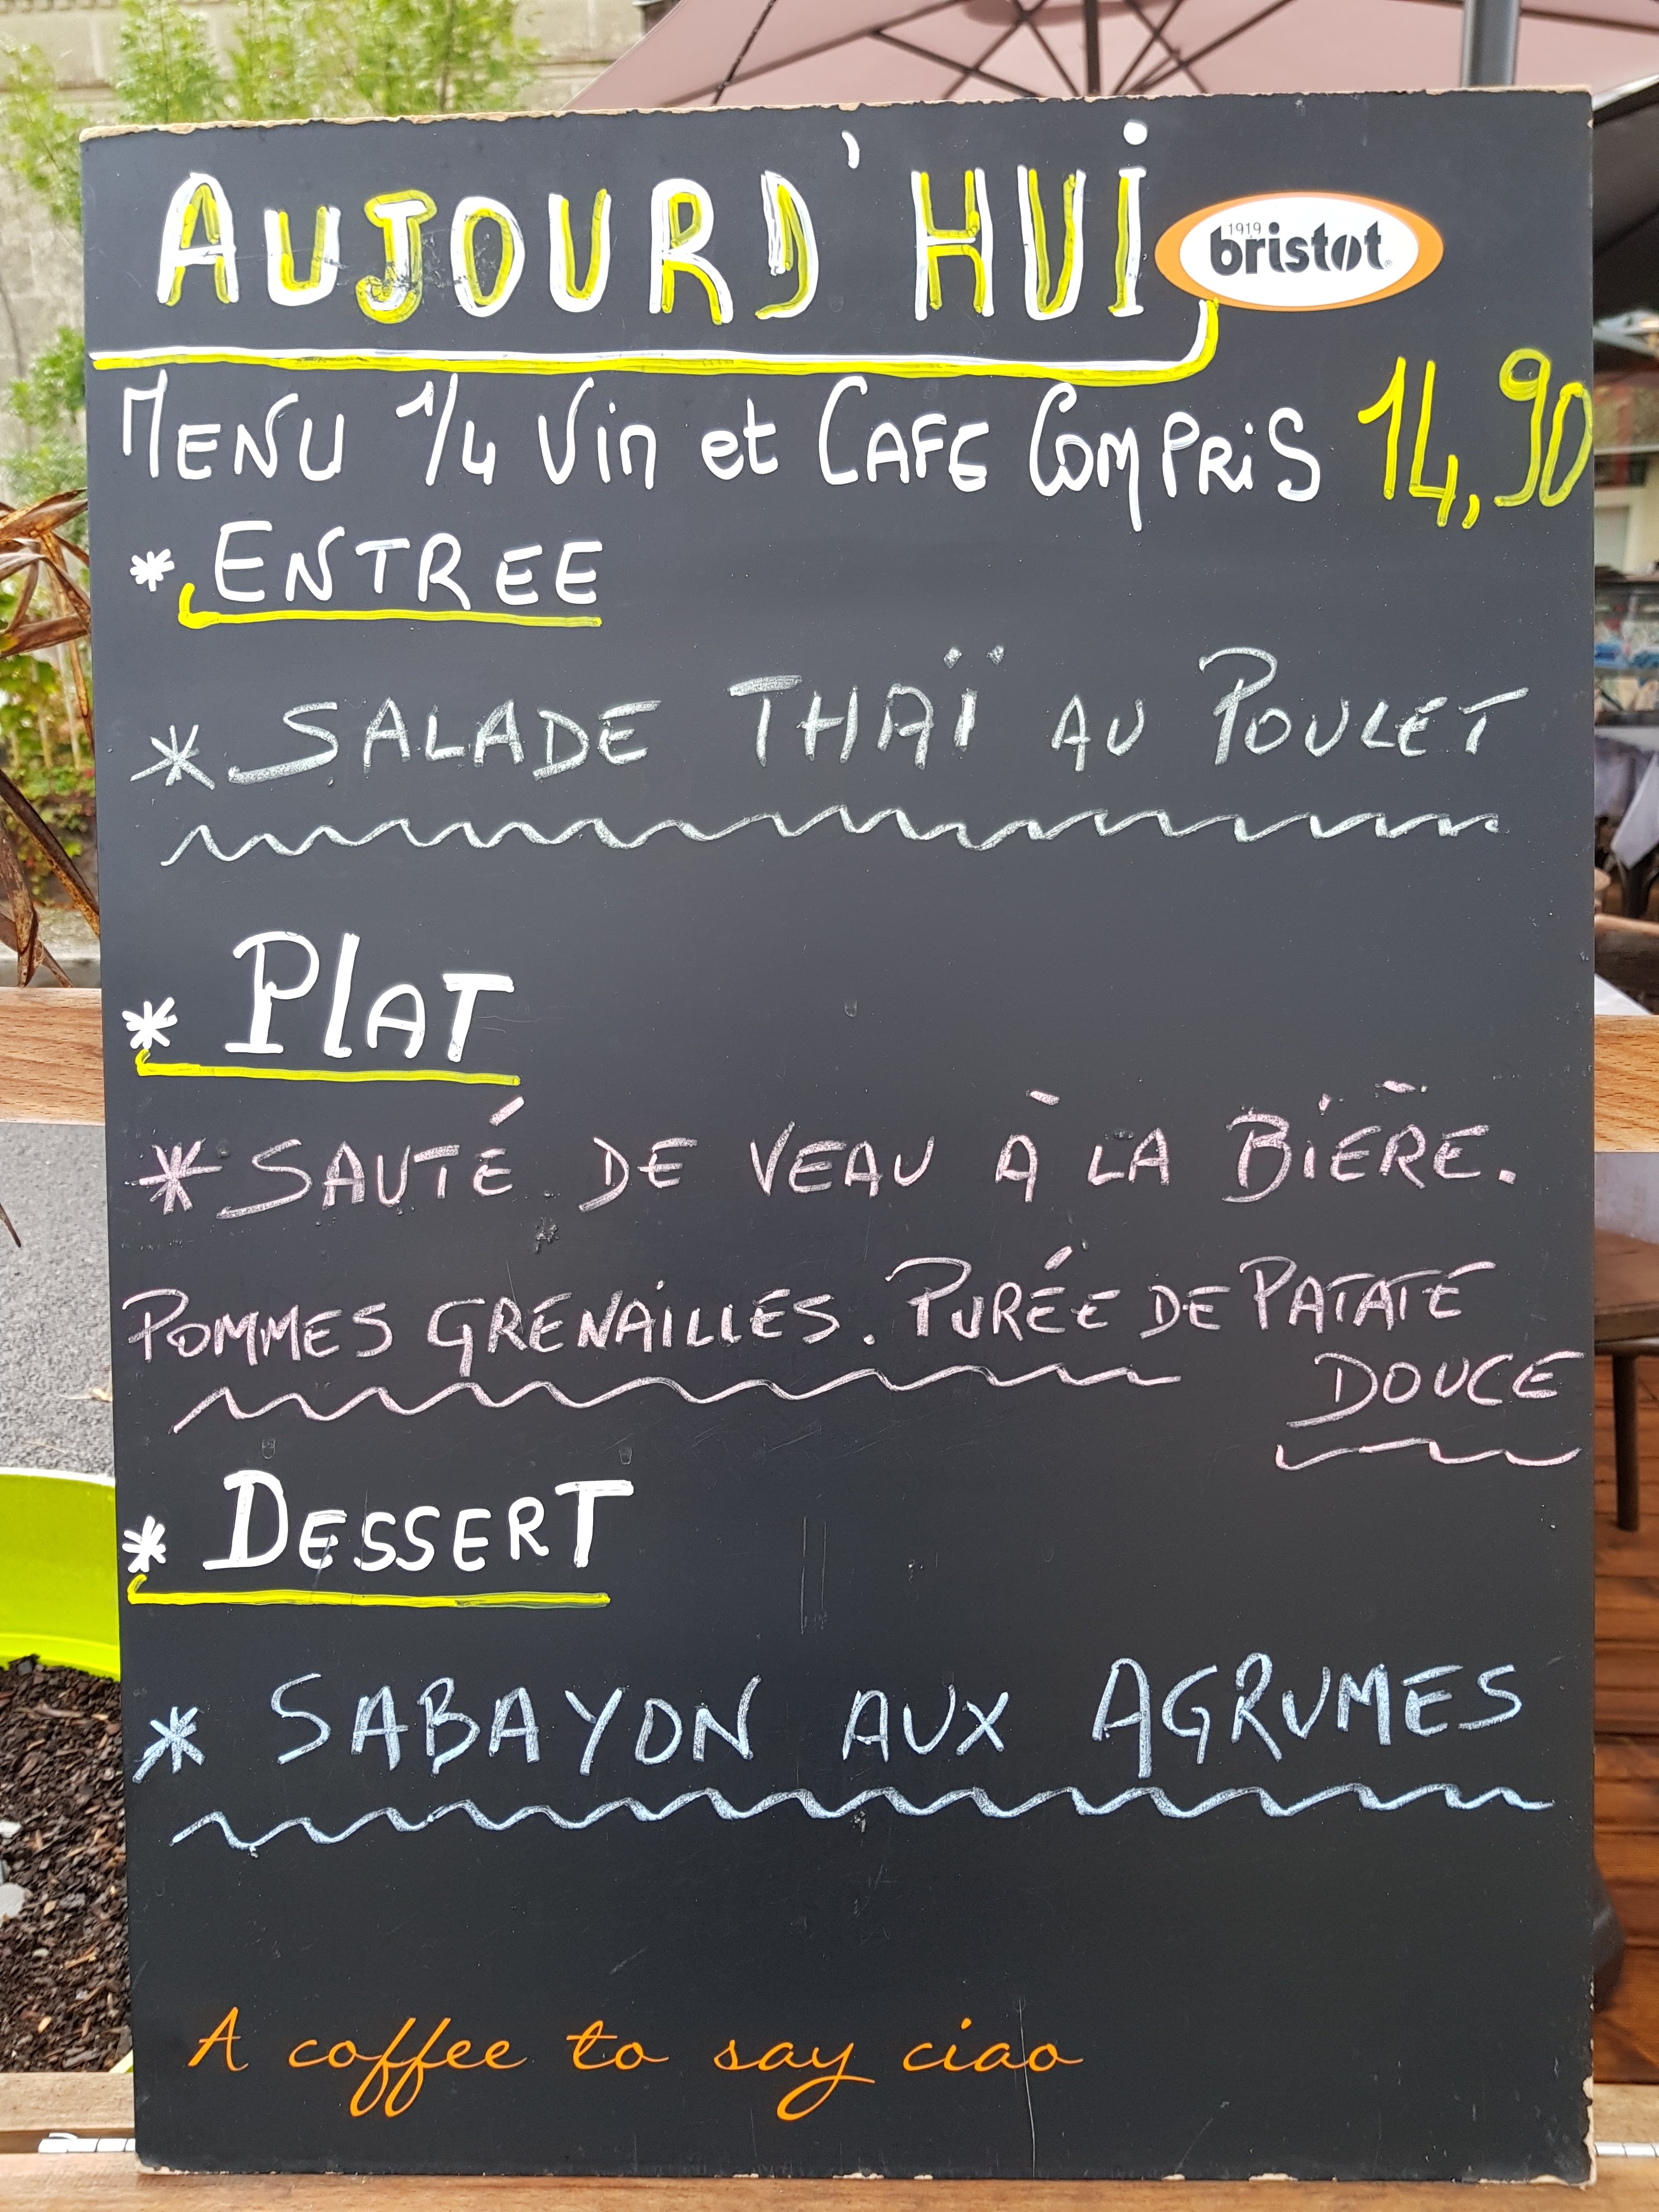 AUJOURD'HUI
1919
bristot
MENU 1/4 Vin et CAFE COMPRIS 14,90
* ENTREE
* SALADE THAÏ AU POULET
* PLAT
* SAUTÉ DE VEAU À LA BIÈRE.
POMMES GRENAILLES. PURÉE DE PATATE
DOUCE
* DESSERT
* SABAYON AUX AGRUMES
A coffee to say ciao